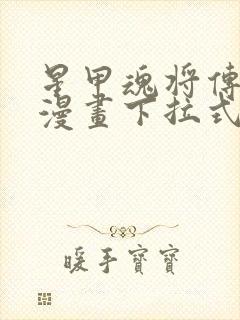 星甲魂将傳
漫畫下拉式
暖手寶寶